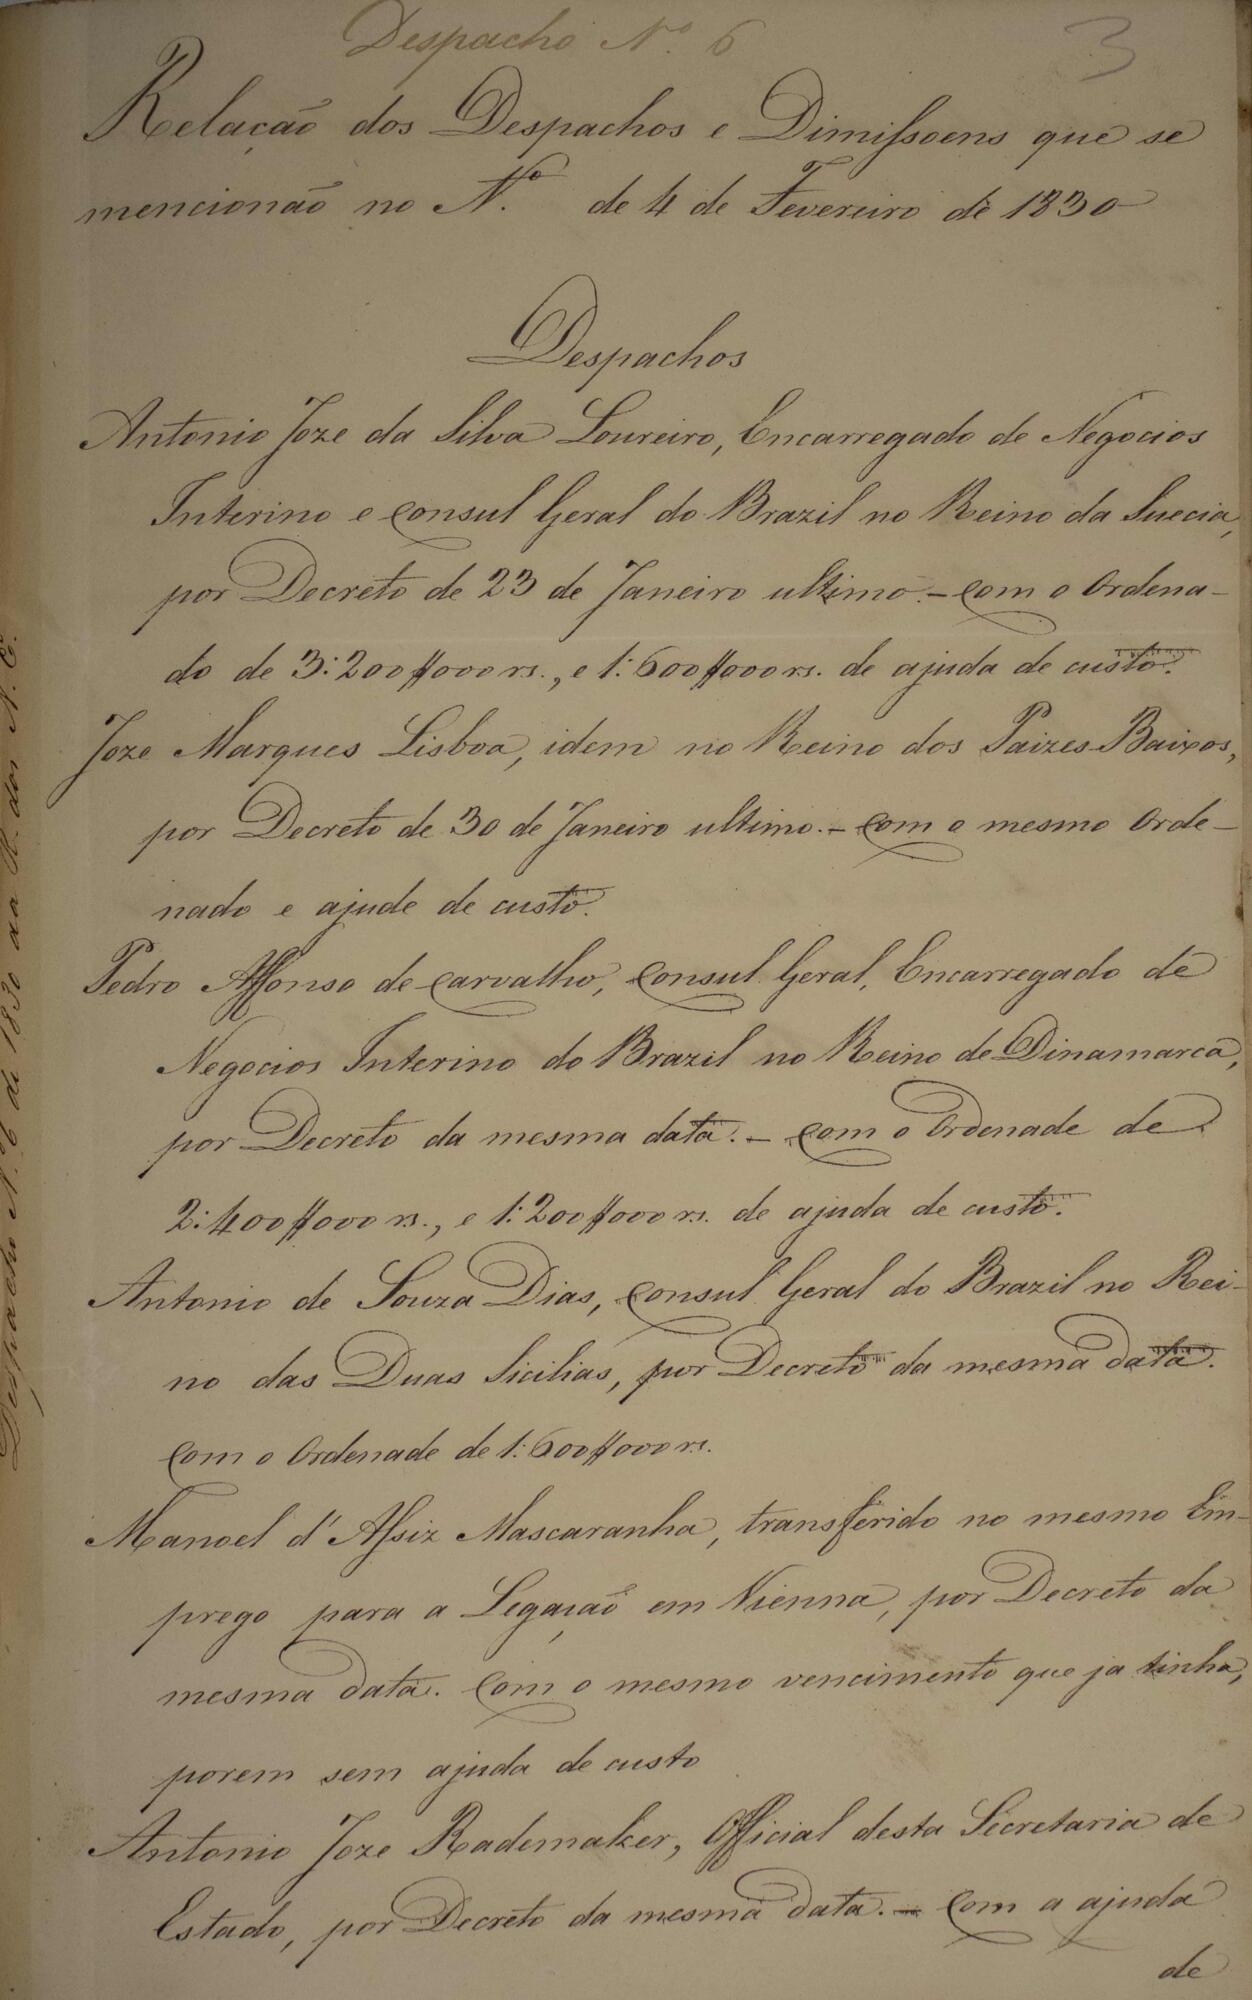 Despacho Nº 6
3
Relação dos Despachos e Dimissoens que se
mencionão no Nº de 4 de Fevereiro de 1830
Despachos
Antonio Joze da Silva Loureiro, Encarregado de Negocios
Interino e Consul Geral do Brazil no Reino da Suecia,
por Decreto de 23 de Janeiro ultimo. - Com o Ordena-
do de 3:200$000 rs., e 1:600$000 rs. de ajuda de custo.
Joze Marques Lisboa, idem no Reino dos Paizes-Baixos,
por Decreto de 30 de Janeiro ultimo. - Com o mesmo Orde-
nado e ajude de custo.
Pedro Affonso de Carvalho, Consul Geral, Encarregado de
Negocios Interino do Brazil no Reino de Dinamarca,
por Decreto da mesma data. - Com o Ordenade de
2:400$000 rs., e 1:200$000 rs. de ajuda de custo.
Antonio de Souza Dias, Consul Geral do Brazil no Rei-
no das Duas Sicilias, por Decreto da mesma data.
Com o Ordenade de 1:600$000 rs.
Manoel d'Assiz Mascaranha, transferido no mesmo Em-
prego para a Legação em Vienna, por Decreto da
mesma data. Com o mesmo vencimento que ja tinha,
porem sem ajuda de custo
Antonio Joze Rademaker, Official desta Secretaria de
Estado, por Decreto da mesma data. - Com a ajuda
de
Despacho N. 6 de 1830 ao R. dos N. E.